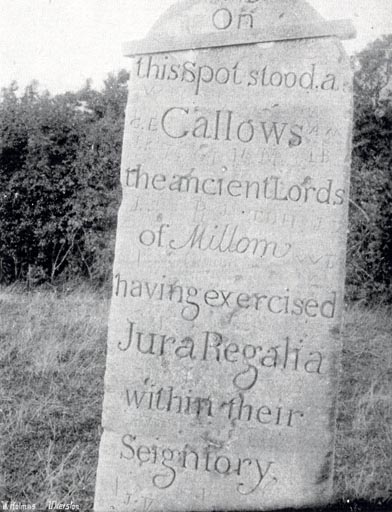 On
this Spot stood a
Gallows
the ancient Lords
of Millom
having exercised
Jura Regalia
within their
Seigniory,
W. Holmes Ulverston